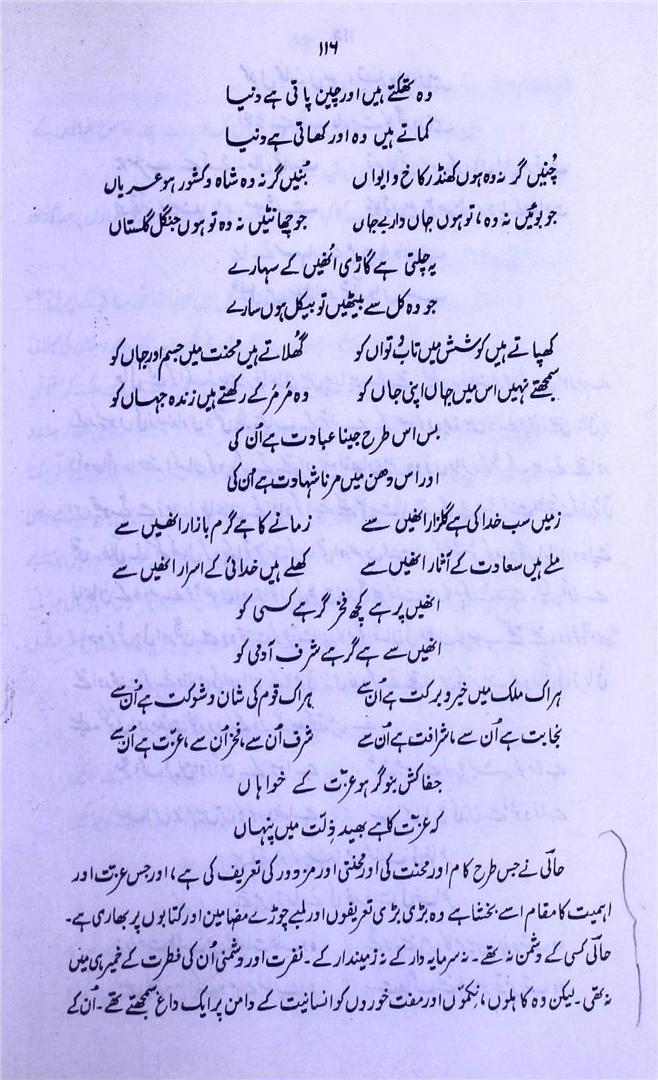 ۱۱۶
وہ تھکتے ہیں اور چین پاتی ہے دنیا
کماتے ہیں وہ اور کھاتی ہے دنیا
چُنیں گر نہ وہ ہوں کھنڈر کاخ و ایواں بُنیں گر نہ وہ شاہ و کشور ہو عریاں
جو بوئیں نہ وہ، تو ہوں جاں دار بے جاں جو چھانٹیں نہ وہ تو ہوں جنگل گلستاں
یہ چلتی ہے گاڑی اُنھیں کے سہارے
جو وہ کل سے بیٹھیں تو بیکل ہوں سارے
کھپاتے ہیں کوشش میں تاب و تواں کو گھُلاتے ہیں محنت میں جسم اور جاں کو
سمجھتے نہیں اس میں جاں اپنی جاں کو وہ مَر مَر کے رکھتے ہیں زندہ جہاں کو
بس اس طرح جینا عبادت ہے اُن کی
اور اس دھن میں مرنا شہادت ہے اُن کی
زمیں سب خدا کی ہے گلزار انھیں سے زمانے کا ہے گرم بازار انھیں سے
ملے ہیں سعادت کے آثار انھیں سے کھلے ہیں خدائی کے اسرار انھیں سے
انھیں پر ہے کچھ فخر گر ہے کسی کو
انھیں سے ہے گر ہے شرف آدمی کو
ہر اک ملک میں خیر و برکت ہے اُن سے ہر اک قوم کی شان و شوکت ہے اُن سے
نجابت ہے اُن سے، شرافت ہے اُن سے شرف اُن سے، فخر اُن سے، عزّت ہے اُن سے
جفاکش بنو گر ہو عزّت کے خواہاں
کہ عزّت کا ہے بھید ذِلّت میں پنہاں
حالؔی نے جس طرح کام اور محنت کی اور محنتی اور مزدور کی تعریف کی ہے، اور جس عزت اور
اہمیت کا مقام اسے بخشتا ہے وہ بڑی بڑی تعریفوں اور لمبے چوڑے مضامین اور کتابوں پر بھاری ہے۔
حالؔی کسی کے دشمن نہ تھے۔ نہ سرمایہ دار کے نہ زمیندار کے۔ نفرت اور دشمنی اُن کی فطرت کے خمیر ہی میں
نہ تھی۔ لیکن وہ کاہلوں، نکمّوں اور مفت خوروں کو انسانیت کے دامن پر ایک داغ سمجھتے تھے۔ اُن کے